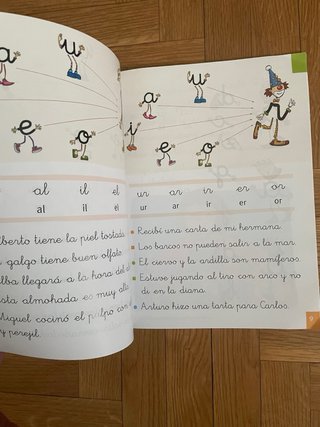 a u
e o
al il el
al il el
lberto tiene la piel tostada
galgo tiene buen olfato.
lba llegará a la hora del a
sta almohada es muy alta
Miguel cocinó el pulpo con
y perejil.
a u
i e o
ur ar ir er or
ur ar ir er or
Recibí una carta de mi hermana.
Los barcos no pueden salir a la mar.
El ciervo y la ardilla son mamíferos.
Estuve jugando al tiro con arco y no
di en la diana.
Arturo hizo una tarta para Carlos.
9